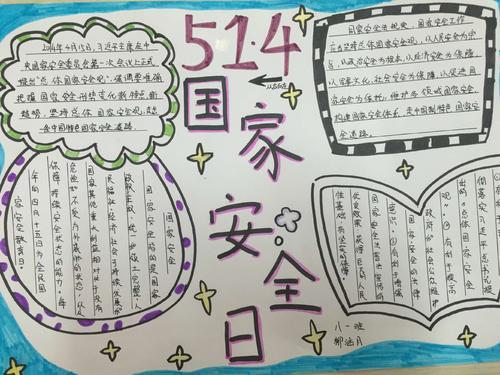 51.4
国家安全日
2014年4月15日,习近平主席在中
央国家安全委员会第一次会议上正式
提出"总体国家安全观",强调要准确
把握国家安全形势变化新特点新
趋势,坚持总体国家安全观,走出
一条中国特色国家安全道路.
国家安全法规定,国家安全工作
应当坚持总体国家安全观,以人民安全为宗
旨,以政治安全为根本,以经济安全为基础,
以军事文化、社会安全为保障,以促进国
际安全为依托,维护各领域国家安全,
构建国家安全体系,走中国特色国家安
全道路.
国家安全
国家安全是指国家
政权、主权、统一和领土完整、人
民福祉、经济社会可持续发展和
国家其他重大利益相对处于没有
危险和不受内外威胁的状态,以及
保障持续安全状态的能力。每
年的四月十五日为全民国
家安全教育日。
彻落实习近平总书记提
出的总体国家安全观
②有利于提高
政府和社会公众维护
国家安全的法律
意识。③有利于增强
国家安全法宣传的
八一班